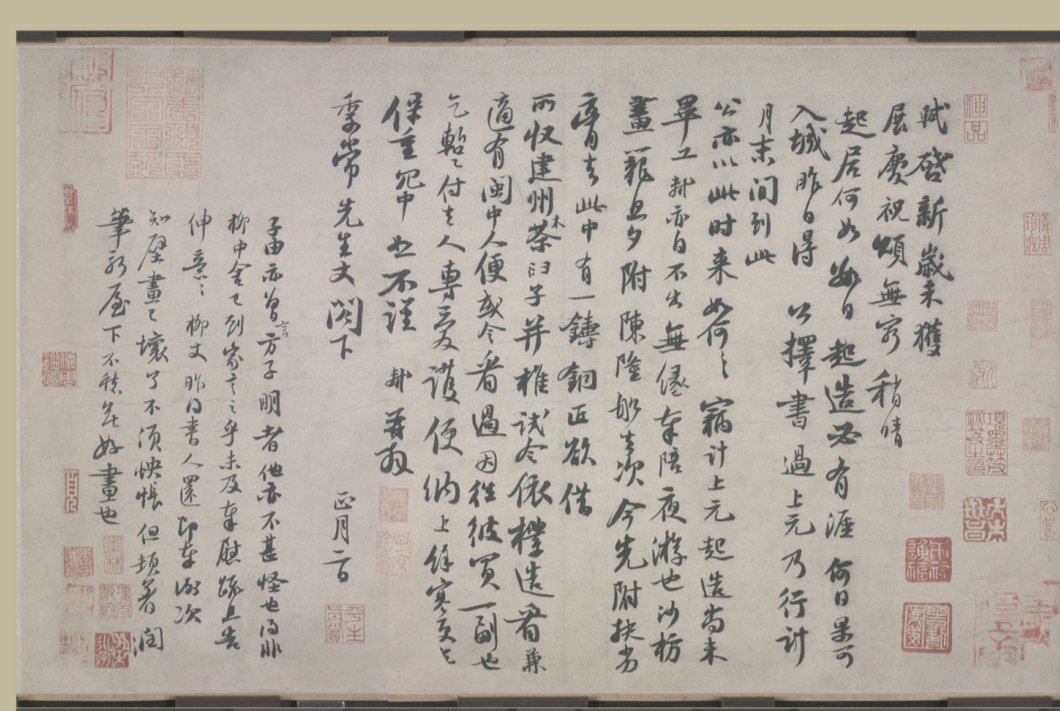 軾啓新歲未獲
展慶祝頌無窮稍晴
起居何如數日起造必有涯何日果可
入城昨日得 公擇書過上元乃行計
月末間到此
公亦以此時來如何〻竊計上元起造尚未
畢工軾亦自不出無緣奉陪夜游也沙枋
畫籠旦夕附陳隆船去次今先附扶劣
膏去此中有一鑄銅匠欲借
所收建州木茶臼子并椎試令依樣造看兼
適有閩中人便或令看過因往彼買一副也
乞暫付去人專愛護便納上餘寒更乞
保重冗中恕不謹 軾再拜
季常先生丈閤下 正月二日
子由亦曾言方子明者他亦不甚怪也得非
柳中舍已到家言之乎未及奉慰疏且告
伸意〻柳丈昨得書人還即奉謝次
知壁畫已壞了不須怏悵但頓著潤
筆新屋下不愁無好畫也